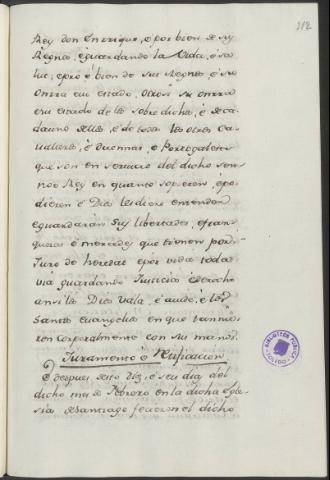 212
Rey don Enrrique, e por bien de su
Regno, e guardando la vida, e sa
lud, e pro e bien de sus Regnos, e su
onrra en estado, otrosi su onrra
en estado de los sobre dichos, e de ca
dauno dellos, e de todos los otros ca
ualleros, e Duennas, e Portogaleses
que son en seruicio del dicho sen
nor Rey en quanto sopieren e po
dieren e Dios les diere a entender
e guardaran sus libertades, e fran
quezas e mercedes que tienen por
Juro de heredat e por vida toda
via guardando Justicia e derecho
ansi les Dios vala, e ayude, e los
Santos Euangelios en que tannie
ron corporalmente con sus manos.
Juramento e Ratificacion
E despues desto diez, e seis dias del
dicho mes de Febrero en la dicha Egle
sia de Santiago fecieron el dicho
BIBLIOTECA PUBLICA
TOLEDO